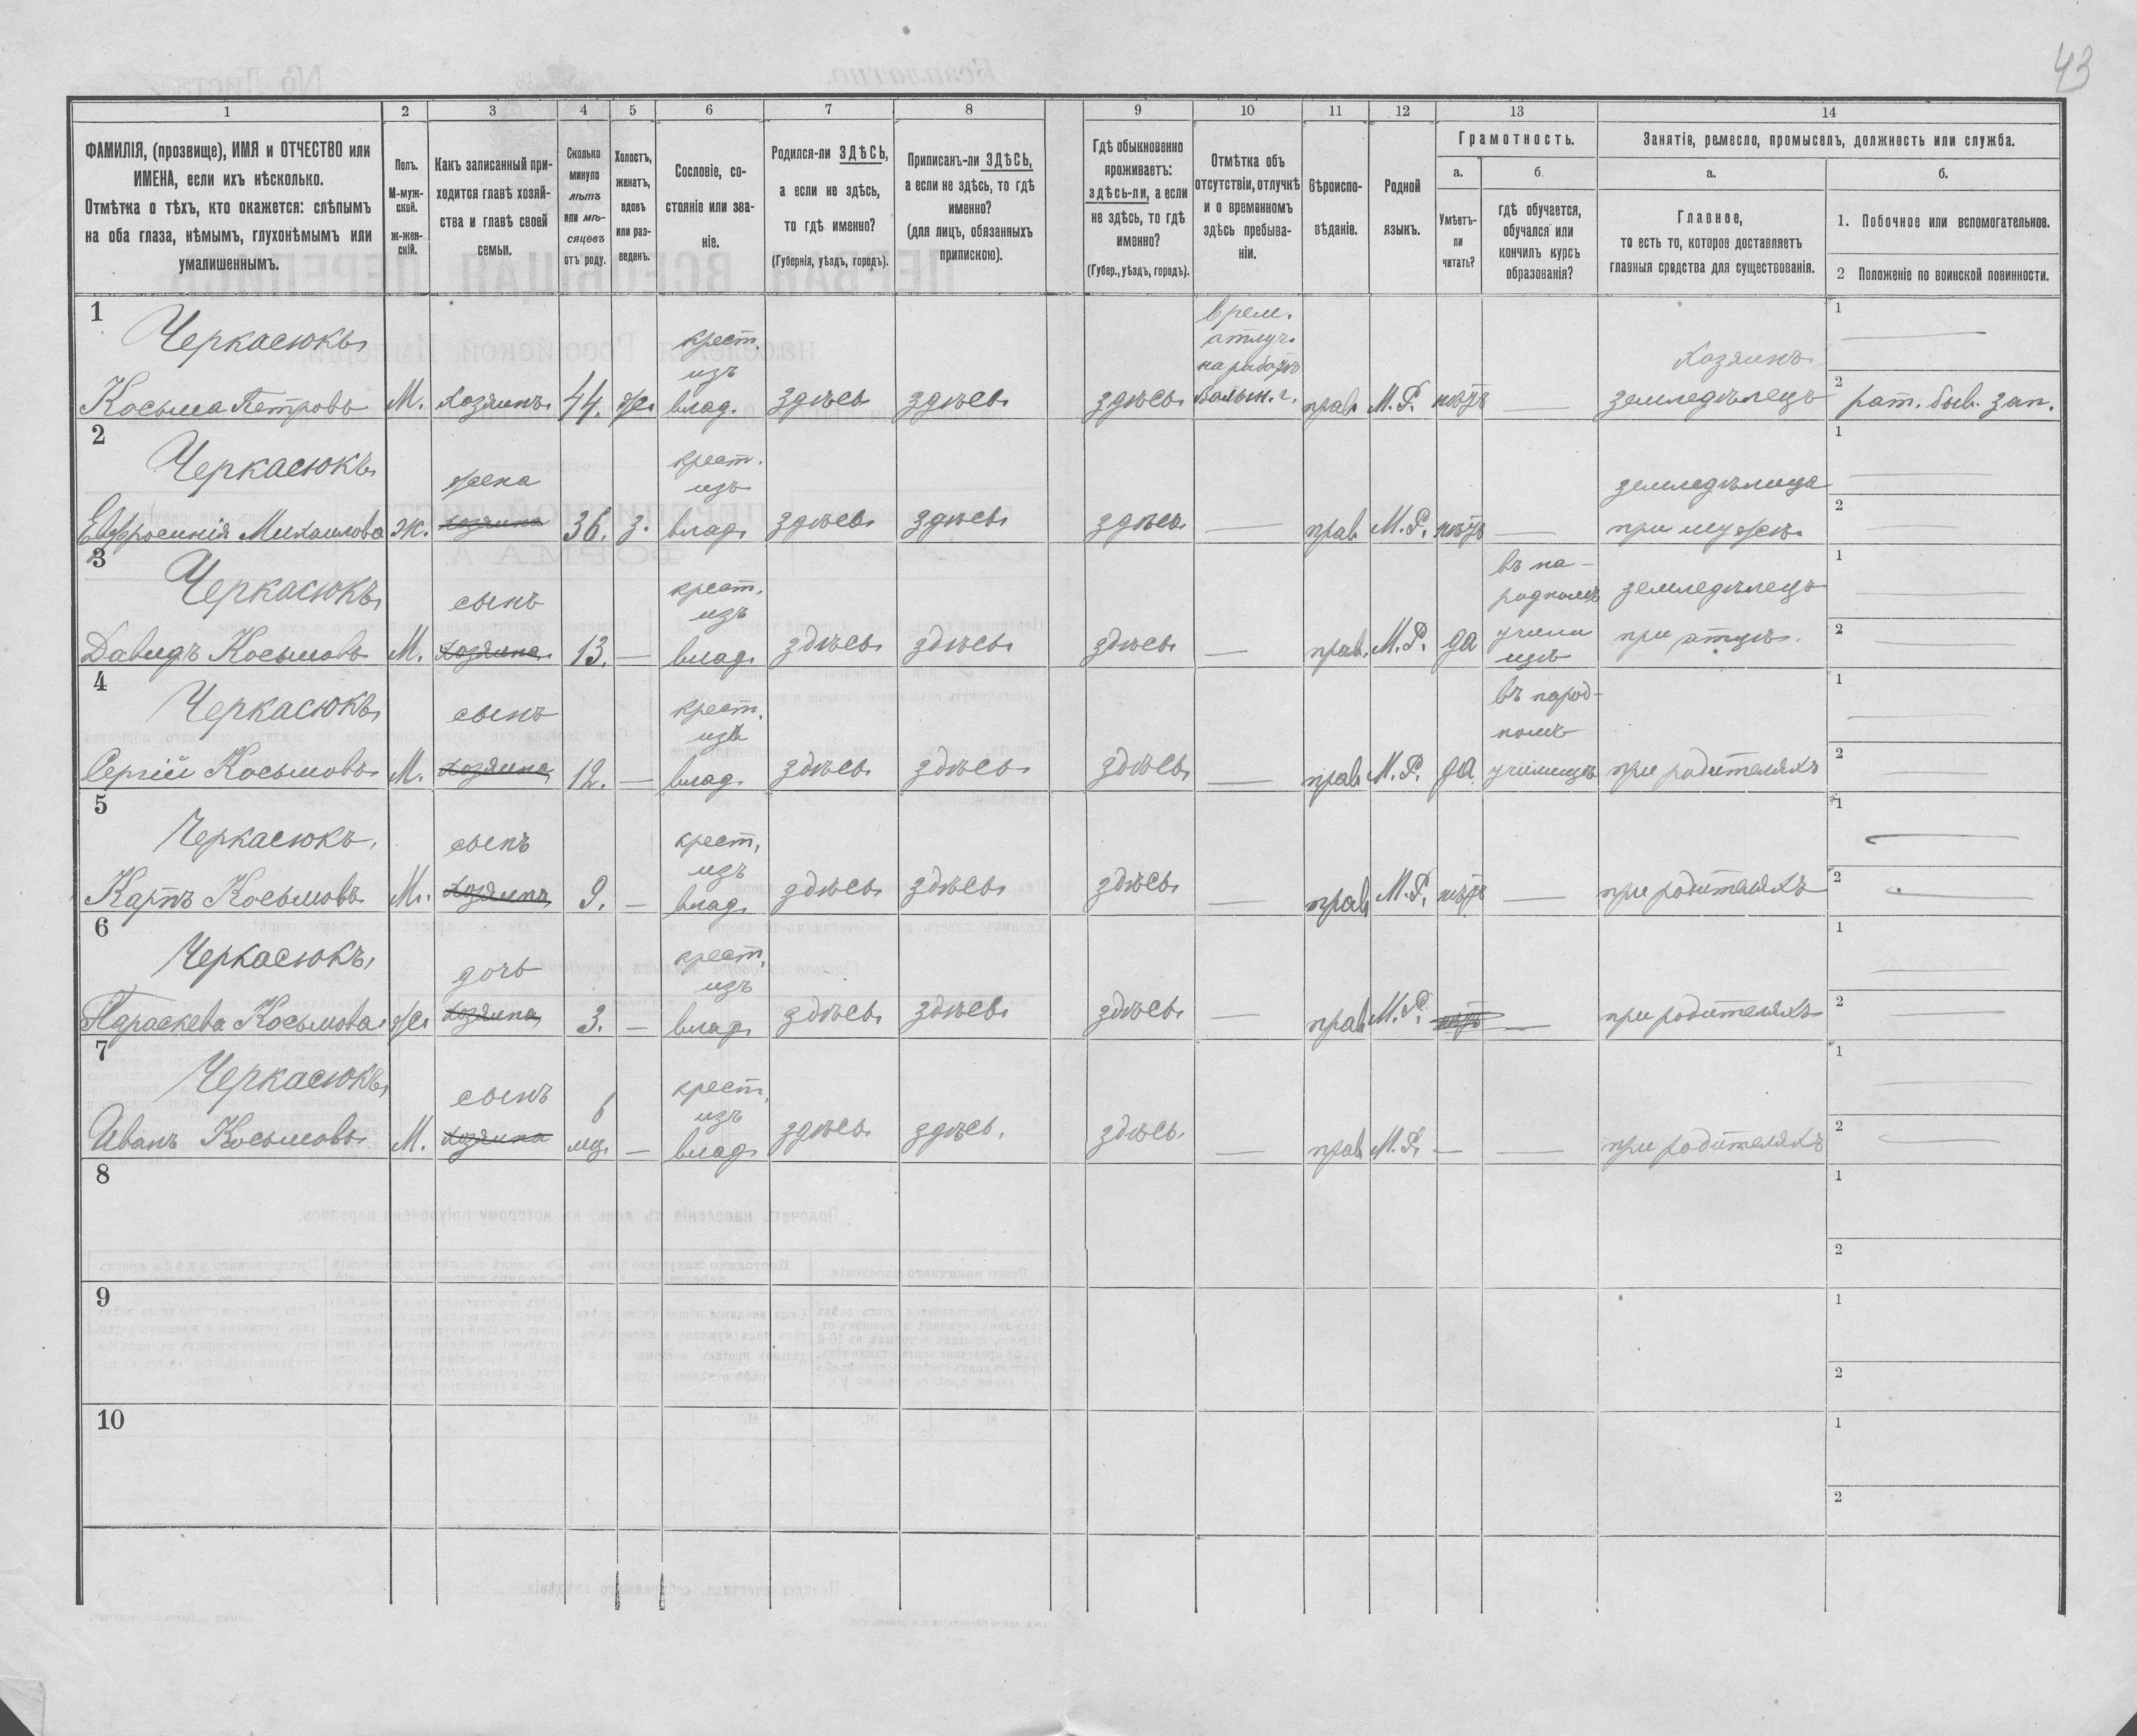 43
1 2 3 4 5 6 7 8 9 10 11 12 13 14
ФАМИЛІЯ, (прозвище), ИМЯ и ОТЧЕСТВО или
ИМЕНА, если ихъ нѣсколько.
Отмѣтка о тѣхъ, кто окажется: слѣпымъ
на оба глаза, нѣмымъ, глухонѣмымъ или
умалишеннымъ.
Полъ.
М-муж-
ской.
ж-жен-
скій.
Какъ записанный при-
ходится главѣ хозяй-
ства и главѣ своей
семьи.
Сколько
минуло
лѣтъ
или мѣ-
сяцевъ
отъ роду.
Холостъ,
женатъ,
вдовъ
или раз-
веденъ.
Сословіе, со-
стояніе или зва-
ніе.
Родился-ли ЗДѢСЬ,
а если не здѣсь,
то гдѣ именно?
(Губернія, уѣздъ, городъ).
Приписанъ-ли ЗДѢСЬ,
а если не здѣсь, то гдѣ
именно?
(для лицъ, обязанныхъ
припискою).
Гдѣ обыкновенно
проживаетъ:
здѣсь-ли, а если
не здѣсь, то гдѣ
именно?
(Губер., уѣздъ, городъ).
Отмѣтка объ
отсутствіи, отлучкѣ
и о временномъ
здѣсь пребыва-
ніи.
Вѣроиспо-
вѣданіе.
Родной
языкъ.
Грамотность.
а.
Умѣетъ-
ли
читать?
б.
гдѣ обучается,
обучался или
кончилъ курсъ
образованія?
Занятіе, ремесло, промыселъ, должность или служба.
а.
Главное,
то есть то, которое доставляетъ
главныя средства для существованія.
б.
1. Побочное или вспомогательное.
2 Положеніе по воинской повинности.
1
Черкасюкъ
Косьма Петровъ
М.
хозяинъ
44.
ж.
крест.
изъ
влад.
здѣсь
здѣсь
здѣсь
врем.
отлуч.
на работъ
Волын. г.
прав.
М. Р.
нѣтъ
Хозяинъ
земледѣлецъ
1
2
рат. быв. зап.
2
Черкасюкъ
Евфросинія Михаилова
ж.
жена
хозяина
36.
з.
крест.
изъ
влад.
здѣсь
здѣсь
здѣсь
прав.
М. Р.
нѣтъ
земледѣлица
при мужѣ.
1
2
3
Черкасюкъ
Давидъ Косьмовъ
М.
сынъ
хозяина
13.
крест.
изъ
влад.
здѣсь
здѣсь
здѣсь
прав.
М. Р.
да
въ на-
родномъ
учили
щѣ
земледѣлецъ
при отцѣ.
1
2
4
Черкасюкъ
Сергій Косьмовъ
М.
сынъ
хозяина
12.
крест.
изъ
влад.
здѣсь
здѣсь
здѣсь
прав.
М. Р.
да
въ народ-
номъ
училищѣ
при родителяхъ
1
2
5
Черкасюкъ
Карпъ Косьмовъ
М.
сынъ
хозяина
9.
крест.
изъ
влад.
здѣсь
здѣсь
здѣсь
прав.
М. Р.
нѣтъ
при родителяхъ
1
2
6
Черкасюкъ
Параскева Косьмова
ж.
дочь
хозяина
3.
крест.
изъ
влад.
здѣсь
здѣсь
здѣсь
прав.
М. Р.
нѣтъ
при родителяхъ
1
2
7
Черкасюкъ
Иванъ Косьмовъ
М.
сынъ
хозяина
6
мц.
крест.
изъ
влад.
здѣсь
здѣсь.
здѣсь.
прав.
М. Р.
при родителяхъ
1
2
8
1
2
9
1
2
10
1
2